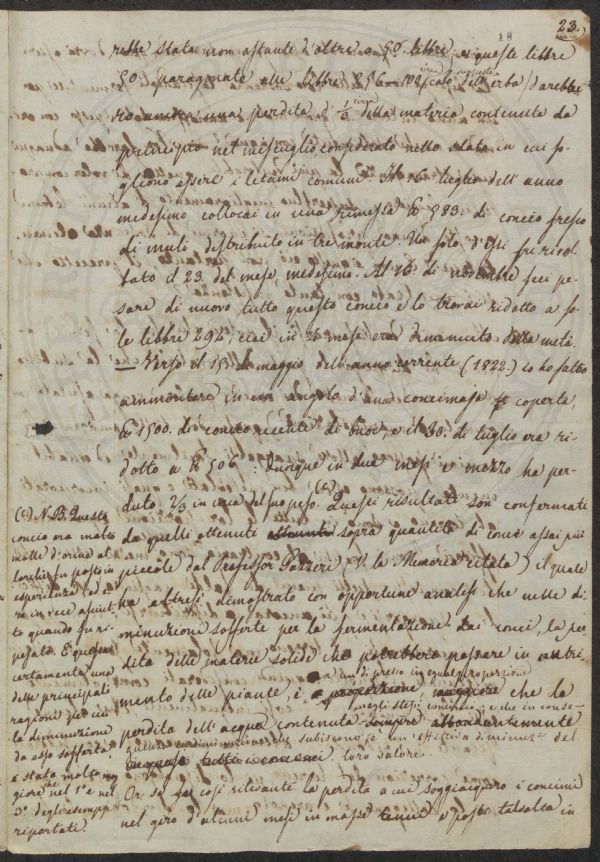 23.
18
rebbe stata non ostante d'oltre a 50. libbre: e queste libbre
50 paragonate alle libbre 256
circa
erba darebbe
ro ancora una perdita d' 1/5 circa della materia contenuta da
principio nel mescuglio considerato nello stato in cui so-
gliono essere i letami comuni. Il 16 luglio dell'anno
medesimo collocai in una rimessa ℔ 583. di concio fresco
di muli, distribuito in tre monti. Un solo d'essi fu rivol-
tato il 23. del mese medesimo. Al 16. di novembre feci pe-
sare di nuovo tutto questo concio e lo trovai ridotto a so-
le libbre 292, cioè in 4 mesi era diminuito della metà.
— Verso il 15 di maggio dell'anno corrente (1822.) io ho fatto
ammontare in un angolo d'una concimaja coperta,
℔ 1500. di concio recente di buoi, e il 30. di luglio era ri-
dotto a ℔ 506: Dunque in due mesi e mezzo ha per-
duto 2/3 in circa del suo peso. (a) Questi risultati son confermati
da quelli ottenuti sopra quantità di conci assai più
piccole dal Professor Gazzeri (V. la Memoria citata) il quale
ha altresì dimostrato con opportune analisi che nelle di
minuzioni sofferte per la fermentazione dei conci, la per
dita delle materie solide che potrebbero passare in nutri
mento delle piante, è a un di presso in egual proporzione che la
perdita dell'acqua contenuta negli stessi concimi; e che in conse-
guenza la diminuzione che subiscono è un'effettiva diminuz.e del
loro valore.
Or se fu così rilevante la perdita a cui soggiacquero i concimi
nel giro d'alcuni mesi in masse tenute a posto talvolta in
(a) N.B. Questo
concio era molto
molle d'orina al
lorchè fu posto in
esperienza, ed e
ra invece asciut-
to quando fu ri-
pesato. E questa
certamente una
delle principali
ragioni per cui
la diminuzione
da esso sofferta
è stata molto mag
giore che nel 1.o e nel
2.o degli esempj
riportati.